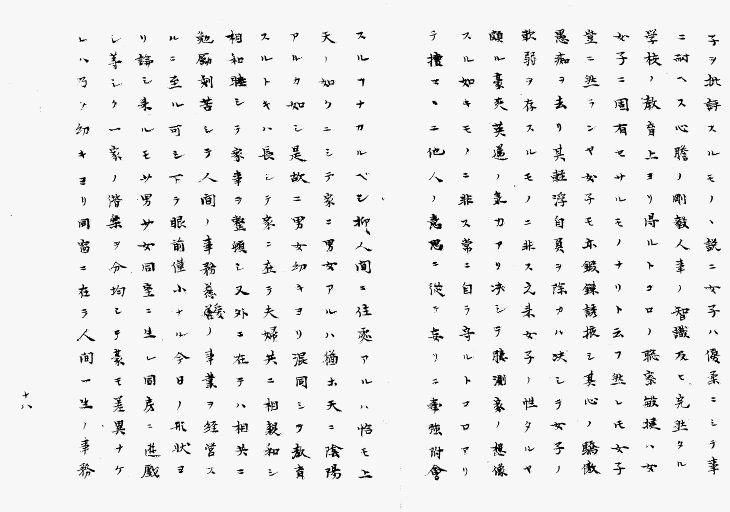 子ヲ批評スルモノヽ説ニ女子ハ優柔ニシテ事
ニ耐ヘス心膽ノ剛毅人事ノ智識及ヒ完然タル
学校ノ教育上ヨリ得ルトコロノ聡察敏捷ハ女
女子ニ固有セサルモノナリト云フ然レモ女子
豈ニ然ランヤ女子モ亦鍛錬誘掖シ其心ノ驕傲
愚痴ヲ去リ其軽浮自負ヲ除カハ决シテ女子ノ
軟弱ヲ存スルモノニ非ス元来女子ノ性タルヤ
頗ル豪爽英邁ノ氣力アリ决シテ臆測家ノ想像
スル如キモノニ非ス常ニ自ラ守ルトコロアリ
テ擅マヽニ他人ノ意思ニ從テ妄リニ牽強附會
スルヿナカルベシ抑人間ニ住處アルハ恰モ上
天ノ如クニシテ家ニ男女アルハ猶ホ天ニ陰陽
アルカ如シ是故ニ男女幼キヨリ混同シテ教育
スルトキハ長シテ家ニ在テ夫婦共ニ相親和シ
相和睦シテ家事ヲ整頓シ又外ニ在テハ相共ニ
勉勵刻苦シテ人間ノ事務慈愛ノ事業ヲ經営ス
ルニ至ル可シ下ヲ眼前僅小ナル今日ノ形状ヨ
リ論シ来ルモ男女同室ニ生レ同房ニ遊戯
シ等シク一家ノ階樂ヲ分均シテ豪モ差異ナケ
レハ乃チ幼キヨリ同窗ニ在テ人間一生ノ事務
十八